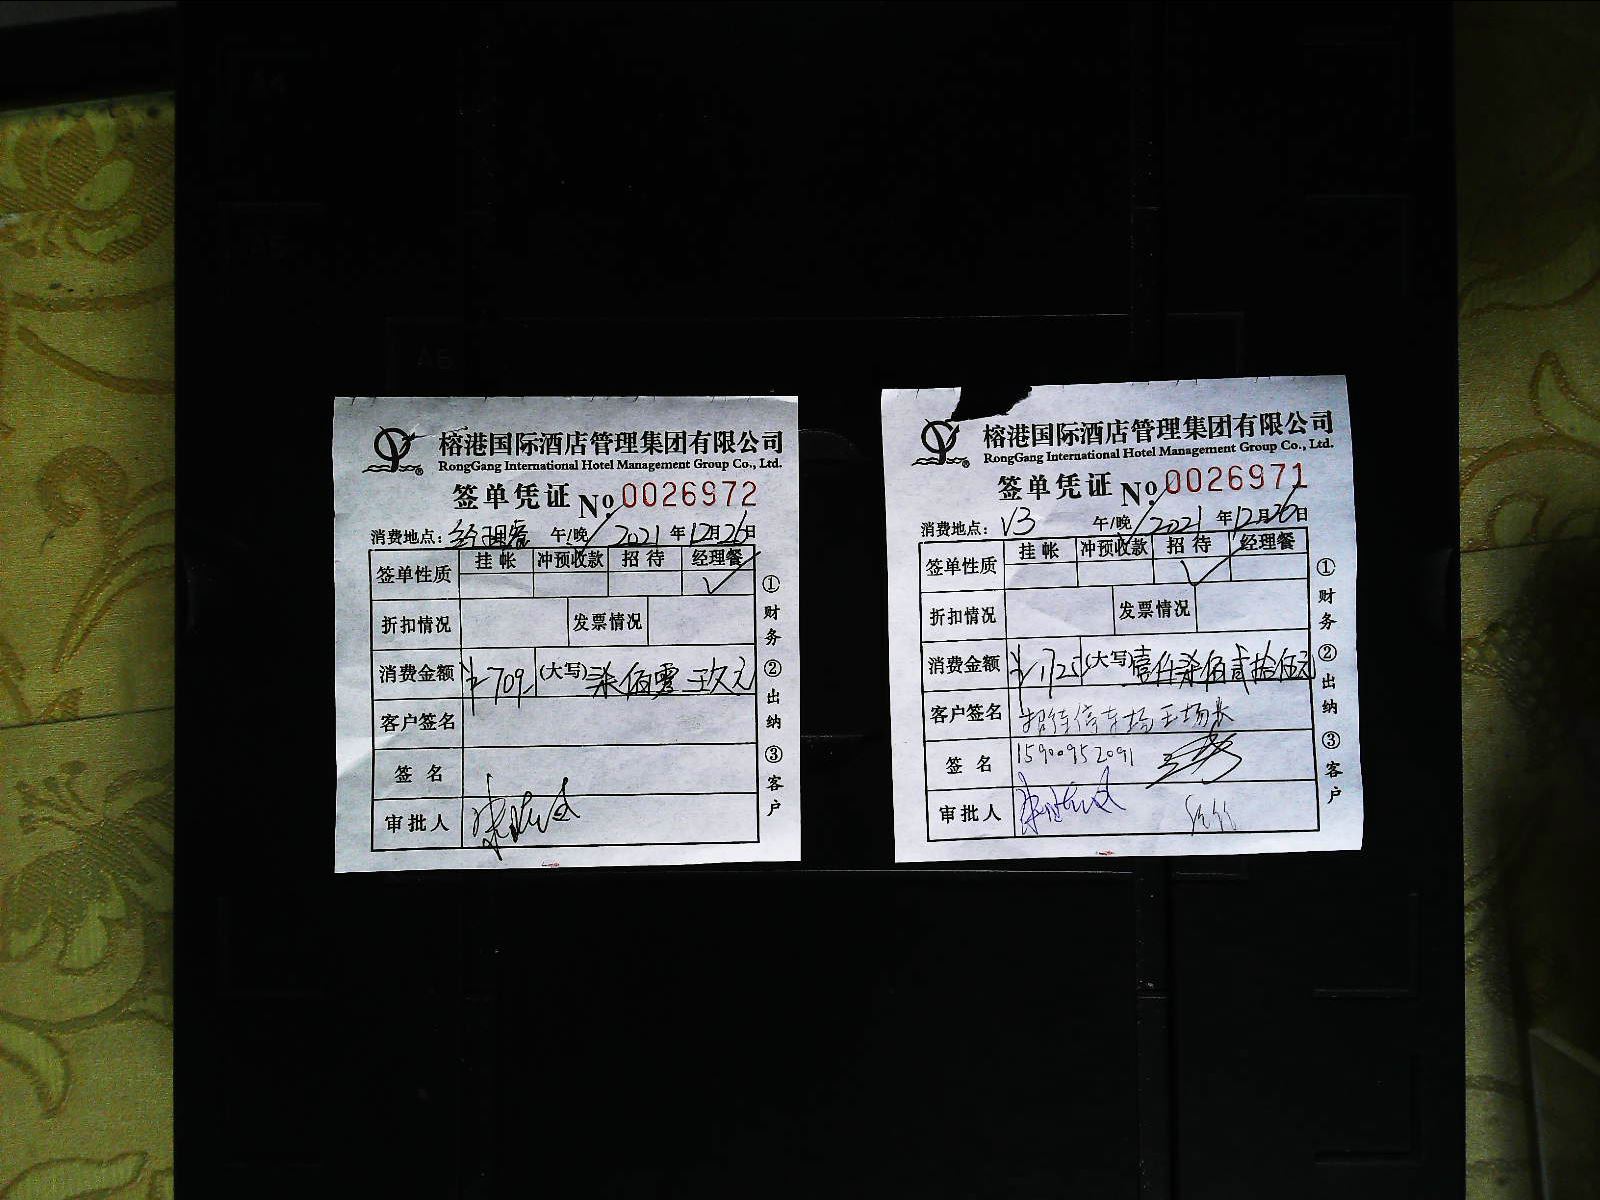 榕港国际酒店管理集团有限公司
RongGang International Hotel Management Group Co., Ltd.
签单凭证 No. 0026972
消费地点: 经理餐 午/晚 2021年12月26日
签单性质 挂帐 冲预收款 招待 经理餐
✓
折扣情况 发票情况
消费金额 ¥709 (大写) 柒佰零玖元
客户签名
签名
审批人
①财务 ②出纳 ③客户
榕港国际酒店管理集团有限公司
RongGang International Hotel Management Group Co., Ltd.
签单凭证 No. 0026971
消费地点: V3 午/晚 2021年12月26日
签单性质 挂帐 冲预收款 招待 经理餐
✓
折扣情况 发票情况
消费金额 ¥1725 (大写) 壹仟柒佰贰拾伍元
客户签名 招待停车场王场长
签名 15900952091
审批人
①财务 ②出纳 ③客户
A6